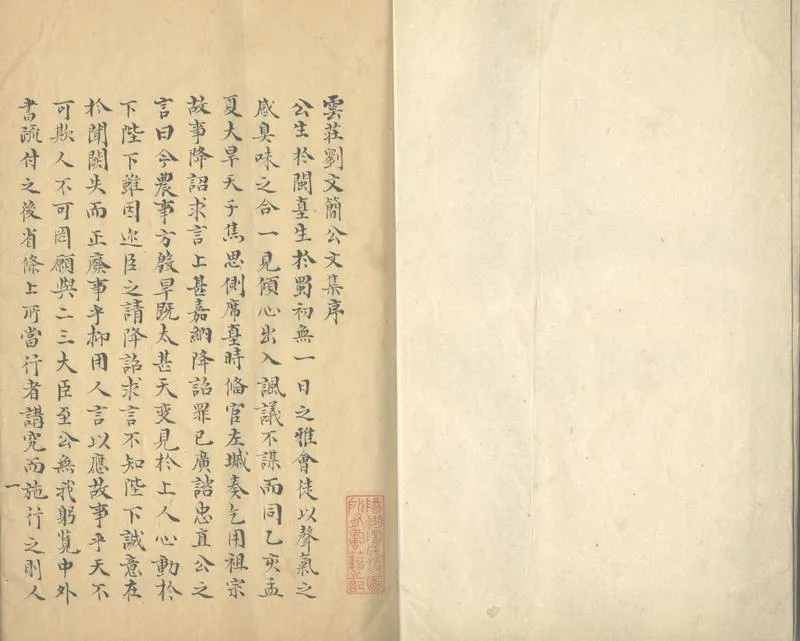 雲莊劉文簡公文集序
公生於閩𡔷生於蜀初無一日之雅會徒以聲氣之
感臭味之合一見傾心出入諷議不謀而同乙亥孟
夏大旱天子焦思側席𡔷時偹官左墄奏乞用祖宗
故事降詔求言上甚嘉納降詔罪已廣諮忠直公之
言曰今農事方殷旱既太甚天變見於上人心動於
下陛下雖因迩臣之請降詔求言不知陛下誠意在
於聞闕失而正廢事乎抑因人言以應故事乎天不
可欺人不可罔願與二三大臣至公無我躬覧中外
書疏付之後省條上所當行者講究而施行之則人
一